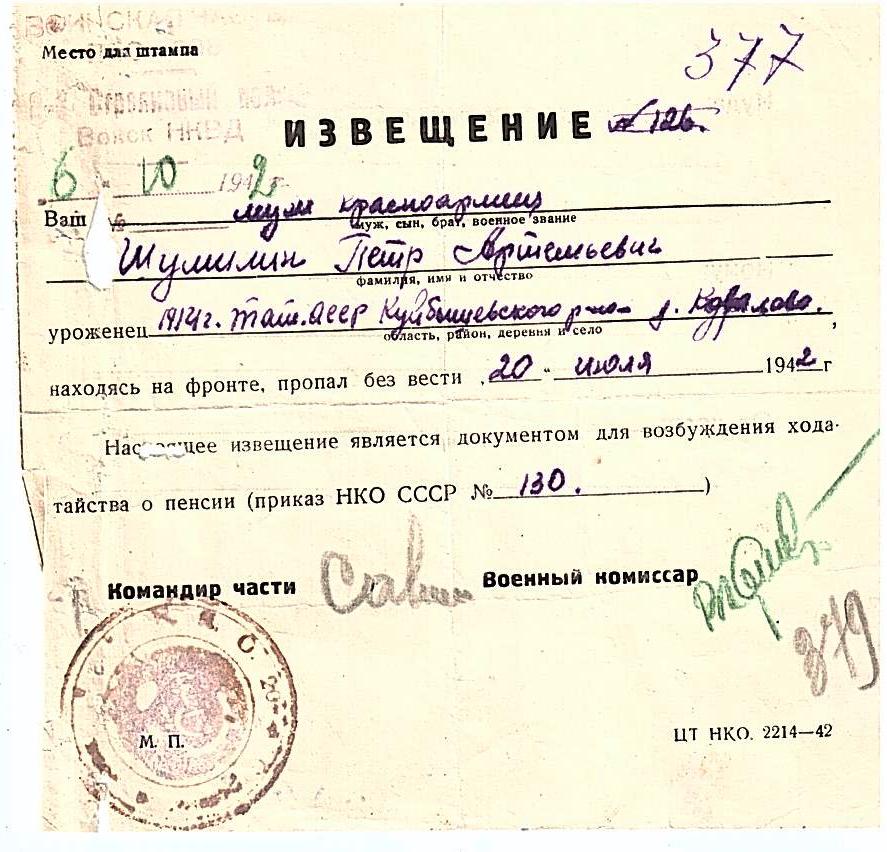 377
Место для штампа
Войск НКВД
ИЗВЕЩЕНИЕ № 126.
6 " 10 1942 г.
Ваш № муж красноармеец
муж, сын, брат, военное звание
Шумилин Петр Артемьевич
фамилия, имя и отчество
уроженец 1914 г. Тат. АССР Куйбышевского р-на д.
область, район, деревня и село
находясь на фронте, пропал без вести „20 " июля 1942 г
Настоящее извещение является документом для возбуждения хода-
тайства о пенсии (приказ НКО СССР № 130. )
Командир части Военный комиссар
379
М. П.
ЦТ НКО. 2214—42